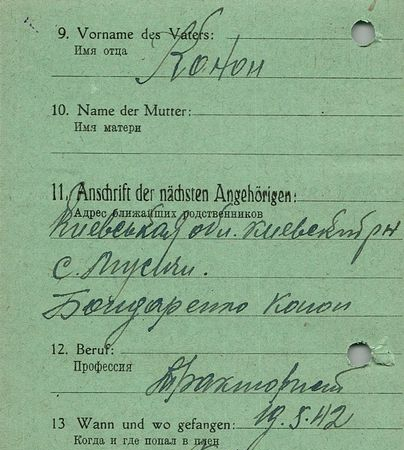 9. Vorname des Vaters:
Имя отца
Конон
10. Name der Mutter:
Имя матери
11. Anschrift der nächsten Angehörigen:
Адрес ближайших родственников
Киевськая обл. киевский рн
с.
Бондаренко Конон
12. Beruf:
Профессия
Тракторист
13 Wann und wo gefangen: 19.5.42
Когда и где попал в плен